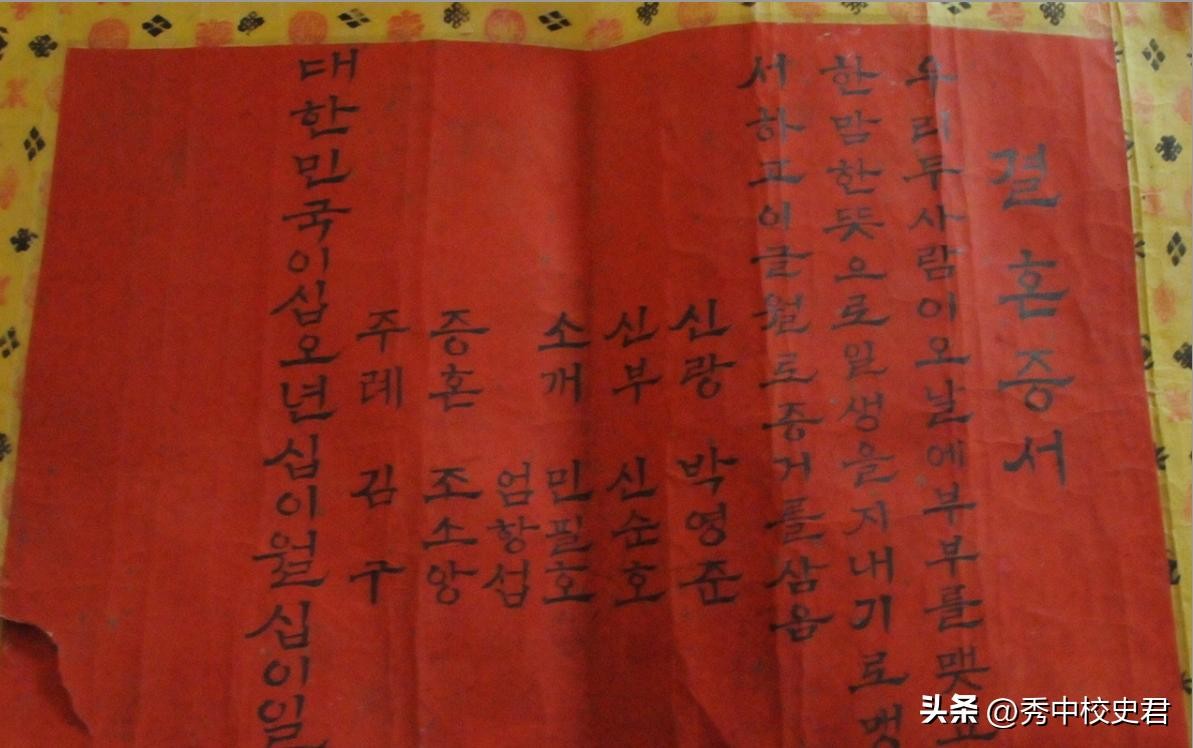 결혼증서
우리두사람이오날에부부를맺고
한맘한뜻으로일생을지내기로맹
서하고이글월로증거를삼음
신랑 박영준
신부 신순호
소개 민필호
엄항섭
증혼 조소앙
주례 김구
대한민국이십오년십이월십이일
头条 @秀中校史君